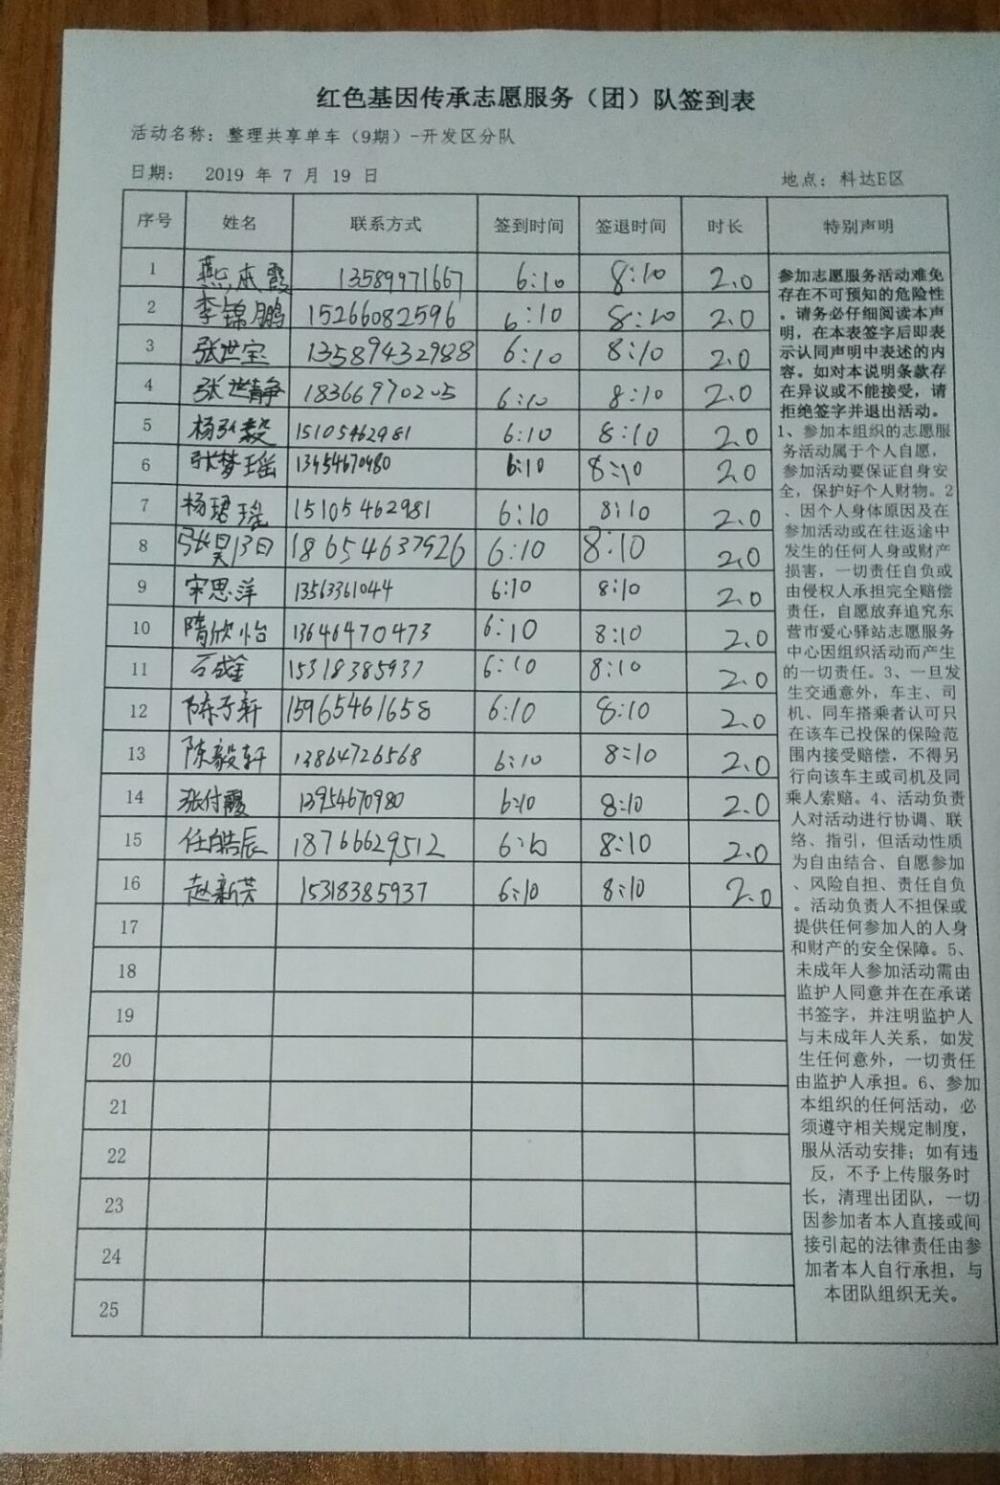 红色基因传承志愿服务（团）队签到表
活动名称：整理共享单车（9期）-开发区分队
日期： 2019 年 7 月 19 日
地点：科达E区
序号 姓名 联系方式 签到时间 签退时间 时长 特别声明
1 燕本霞 13589971667 6:10 8:10 2.0
2 李锦鹏 15266082596 6:10 8:10 2.0
3 张世宝 13589432988 6:10 8:10 2.0
4 张世静 18366970205 6:10 8:10 2.0
5 杨弘毅 15105462981 6:10 8:10 2.0
6 张梦瑶 13954670980 6:10 8:10 2.0
7 杨珺瑶 15105462981 6:10 8:10 2.0
8 张昊 18654637926 6:10 8:10 2.0
9 宋思洋 13563361044 6:10 8:10 2.0
10 隋欣怡 13646470473 6:10 8:10 2.0
11 石成金 15318385937 6:10 8:10 2.0
12 陈子轩 15965461658 6:10 8:10 2.0
13 陈毅轩 13864726568 6:10 8:10 2.0
14 张付霞 13954670980 6:10 8:10 2.0
15 任皓辰 18766629512 6:10 8:10 2.0
16 赵新芳 15318385937 6:10 8:10 2.0
17
18
19
20
21
22
23
24
25
参加志愿服务活动难免
存在不可预知的危险性
，请务必仔细阅读本声
明，在本表签字后即表
示认同声明中表述的内
容。如对本说明条款存
在异议或不能接受，请
拒绝签字并退出活动。
1、参加本组织的志愿服
务活动属于个人自愿，
参加活动要保证自身安
全，保护好个人财物。2
、因个人身体原因及在
参加活动或在往返途中
发生的任何人身或财产
损害，一切责任自负或
由侵权人承担完全赔偿
责任，自愿放弃追究东
营市爱心驿站志愿服务
中心因组织活动而产生
的一切责任。3、一旦发
生交通意外，车主、司
机、同车搭乘者认可只
在该车已投保的保险范
围内接受赔偿，不得另
行向该车主或司机及同
乘人索赔。4、活动负责
人对活动进行协调、联
络、指引，但活动性质
为自由结合、自愿参加
、风险自担、责任自负
。活动负责人不担保或
提供任何参加人的人身
和财产的安全保障。5、
未成年人参加活动需由
监护人同意并在在承诺
书签字，并注明监护人
与未成年人关系，如发
生任何意外，一切责任
由监护人承担。6、参加
本组织的任何活动，必
须遵守相关规定制度，
服从活动安排；如有违
反，不予上传服务时
长，清理出团队，一切
因参加者本人直接或间
接引起的法律责任由参
加者本人自行承担，与
本团队组织无关。